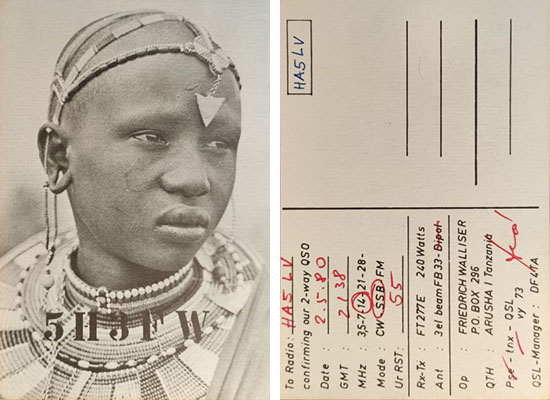 5H3FW
HA5LV
To Radio: HA5LV
confirming our 2-way QSO
Date : 2.5.80
GMT : 2138
MHz 3,5-7-14-21-28-
Mode CW-SSB-FM
Ur RST: 55
Rx-Tx FT277E 240 Watts
Ant : 3 el beam FB33-Dipol
Op : FRIEDRICH WALLISER
P.O. BOX 296
QTH : ARUSHA / Tanzania
Pse - tnx - QSL
vy 73
QSL-Manager : DF4TA